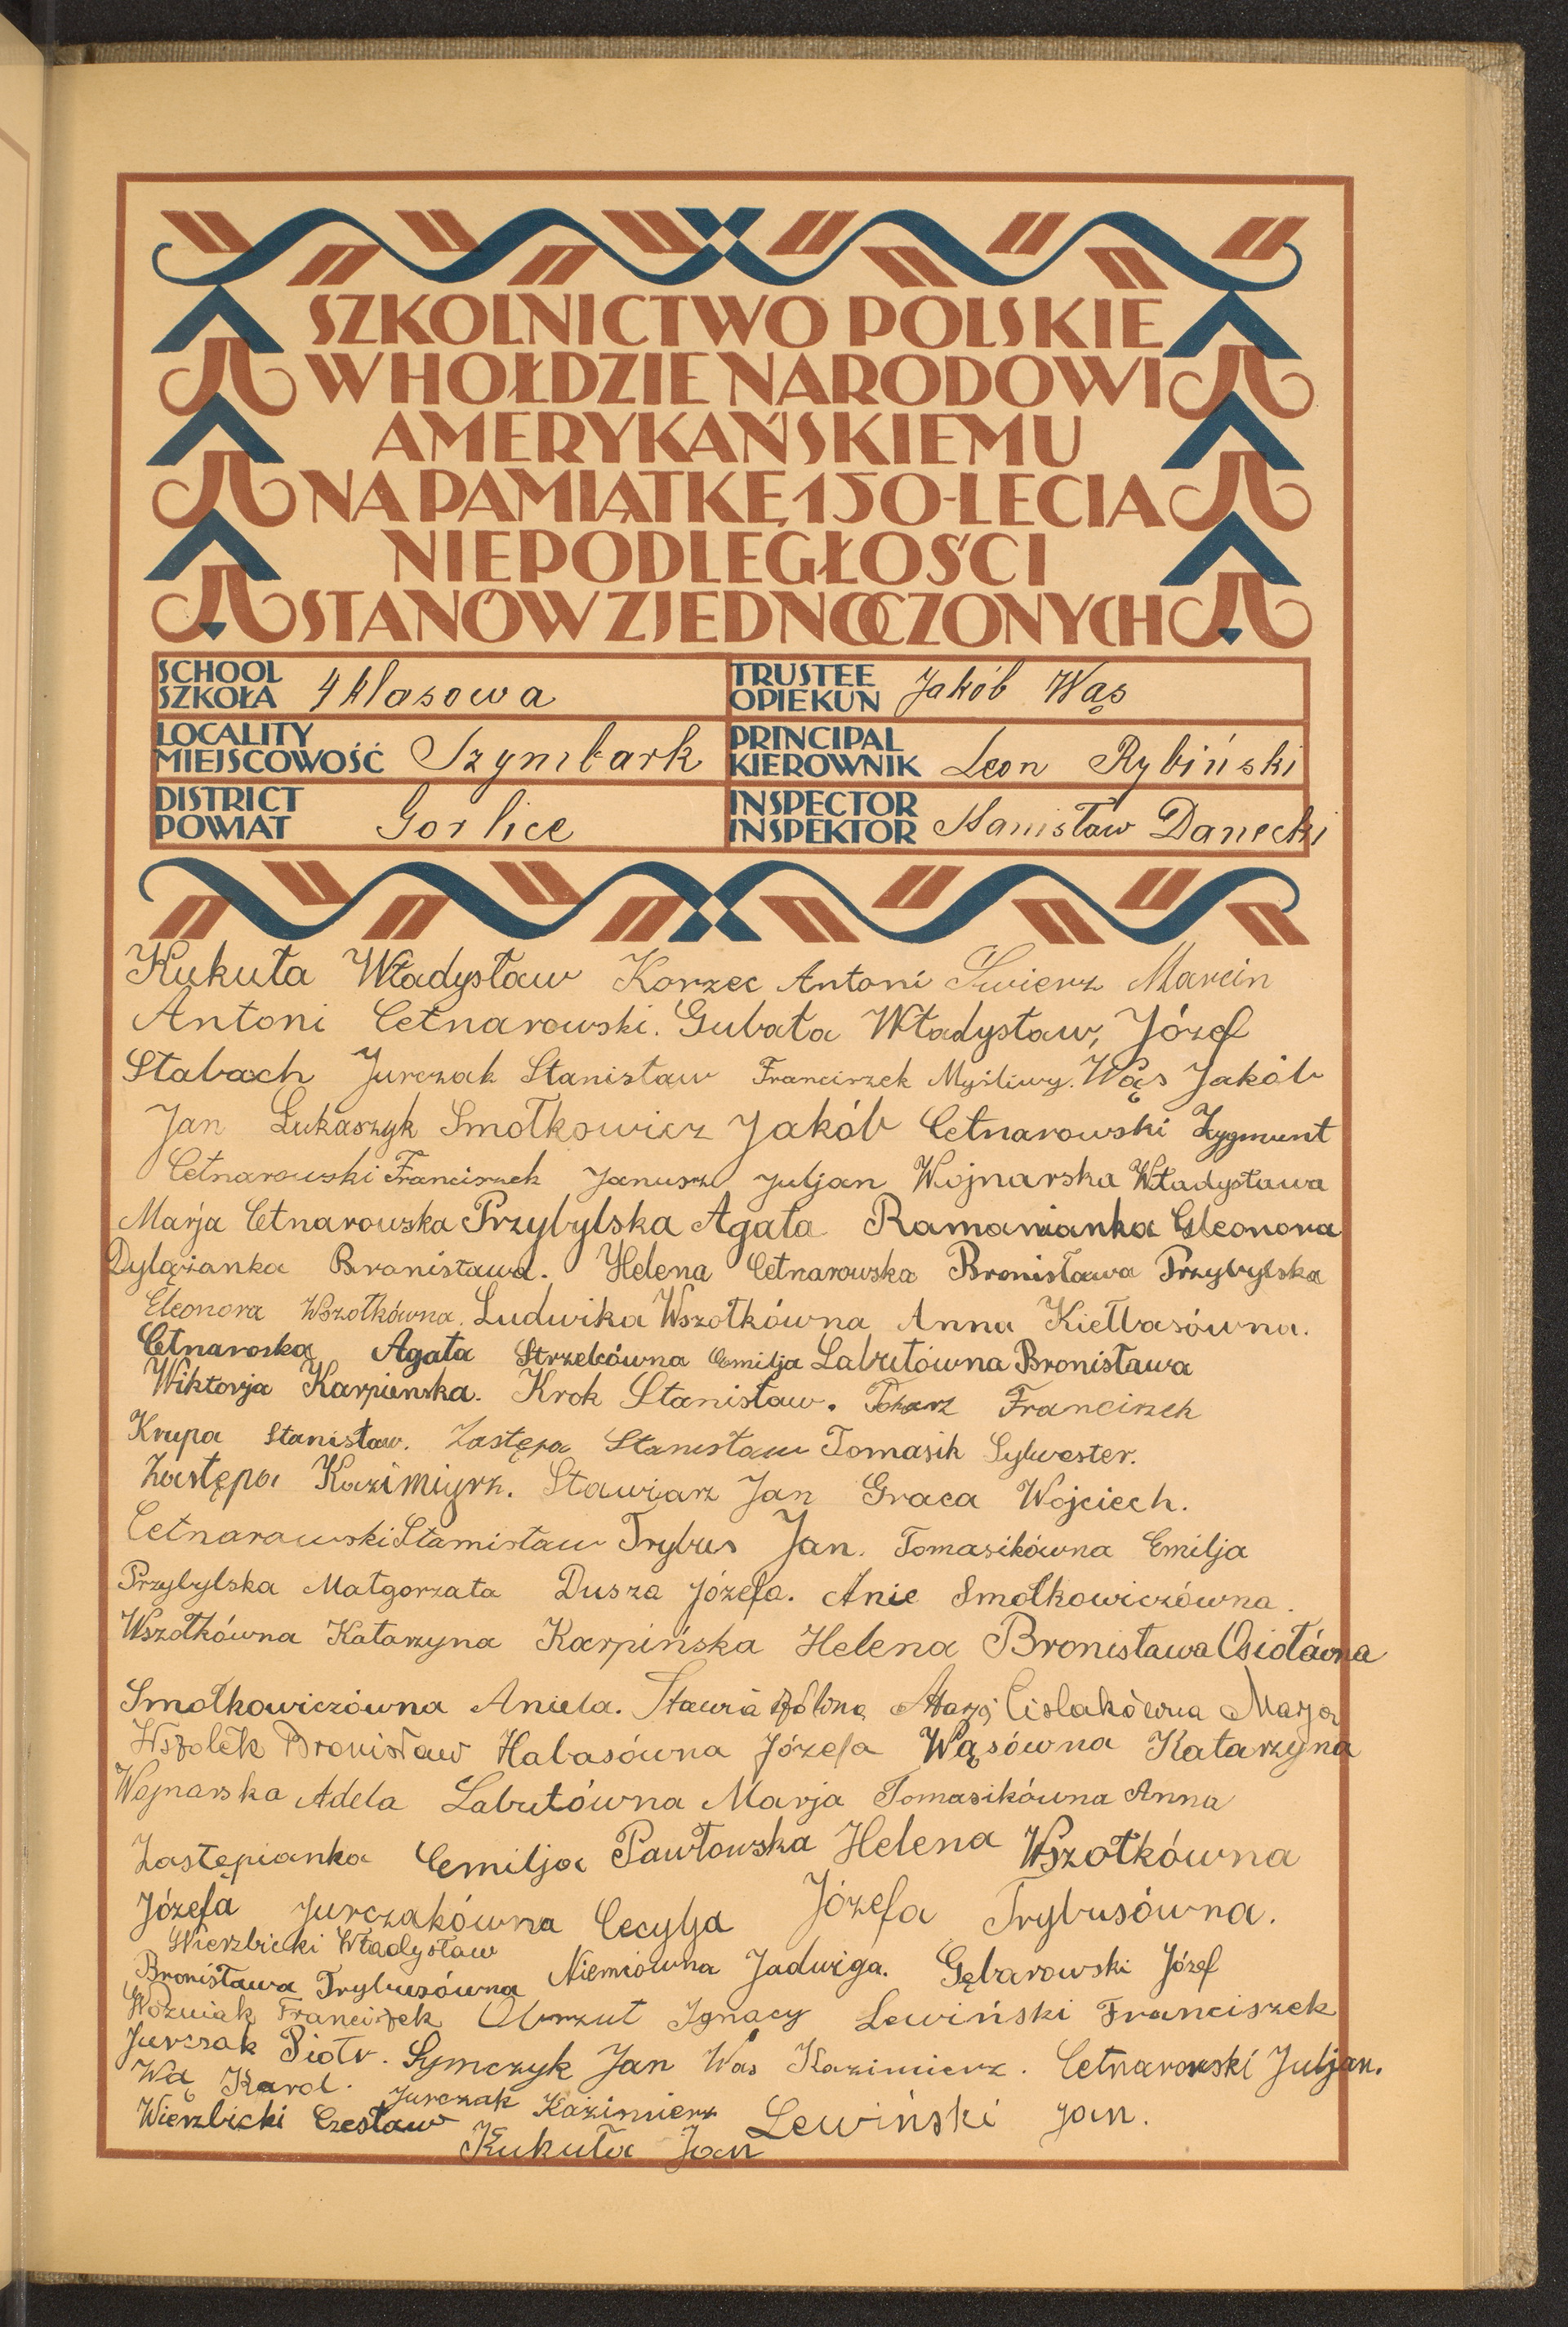 SZKOLNICTWO POLSKIE
W HOŁDZIE NARODOWI
AMERYKAŃSKIEMU
NA PAMIĄTKĘ 150-LECIA
NIEPODLEGŁOŚCI
STANÓW ZJEDNOCZONYCH
SCHOOL
SZKOŁA 4 klasowa
TRUSTEE
OPIEKUN Jakób Wąs
LOCALITY
MIEJSCOWOŚĆ Szymbark
PRINCIPAL
KIEROWNIK Leon Rybiński
DISTRICT
POWIAT Gorlice
INSPECTOR
INSPEKTOR Stanisław Danecki
Kukuła Władysław Korzec Antoni Świerz Marcin
Antoni Cetnarowski. Gubała Władysław, Józef
Stabach Jurczak Stanisław Franciszek Myśliwy. Wąs Jakób
Jan Łukaszyk Smołkowicz Jakób Cetnarowski Zygmunt
Cetnarowski Franciszek Janusz Juljan Wojnarska Władysława
Marja Cetnarowska Przybylska Agata Romanianka Eleonora
Dylążanka Bronisława. Helena Cetnarowska Bronisława Przybylska
Eleonora Wszołkówna. Ludwika Wszołkówna Anna Kiełbasówna.
Cetnaroska Agata Strzelcówna Emilja Labutówna Bronisława
Wiktorja Karpienska. Krok Stanisław. Tokarz Franciszek
Krupa Stanisław. Zastępa Stanisław Tomasik Sylwester.
Zastępa Kazimiyrz. Stawiarz Jan Graca Wojciech.
Cetnarowski Stamisław Trybus Jan. Tomasikówna Emilja
Przybylska Małgorzata Dusza Józefa. Anie Smołkowiczówna.
Wszołkówna Katarzyna Karpińska Helena Bronisława Osiołówna
Smołkowiczówna Aniela. Marja Cislakówna Marja
Wszołek Bronisław Habasówna Józefa Wąsówna Katarzyna
Wojnarska Adela Labutówna Marja Tomasikówna Anna
Zastępianka Emilja Pawłowska Helena Wszołkówna
Józefa Jurczakówna Cecylja Józefa Trybusówna.
Wierzbicki Władysław
Bronisława Trybusówna Niemcówna Jadwiga. Gębarowski Józef
Woźniak Franciszek Obrzut Ignacy Lewiński Franciszek
Jurczak Piotr. Symczyk Jan Was Kazimierz. Cetnarowski Juljan.
Wą Karol. Jurczak Kazimierz Lewiński Jan.
Wierzbicki Czesław
Kukuła Jan